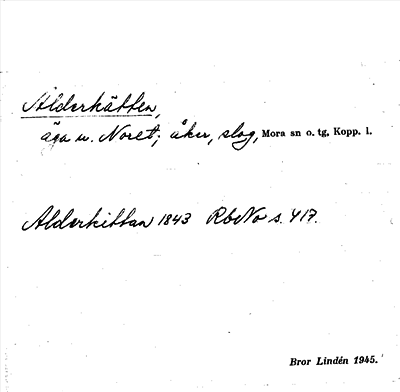 Alderkätten,
äga u. Noret; åker, slog, Mora sn o. tg, Kopp. l.
Alderkittan 1843 RbNo s. 417.
Bror Lindén 1945.